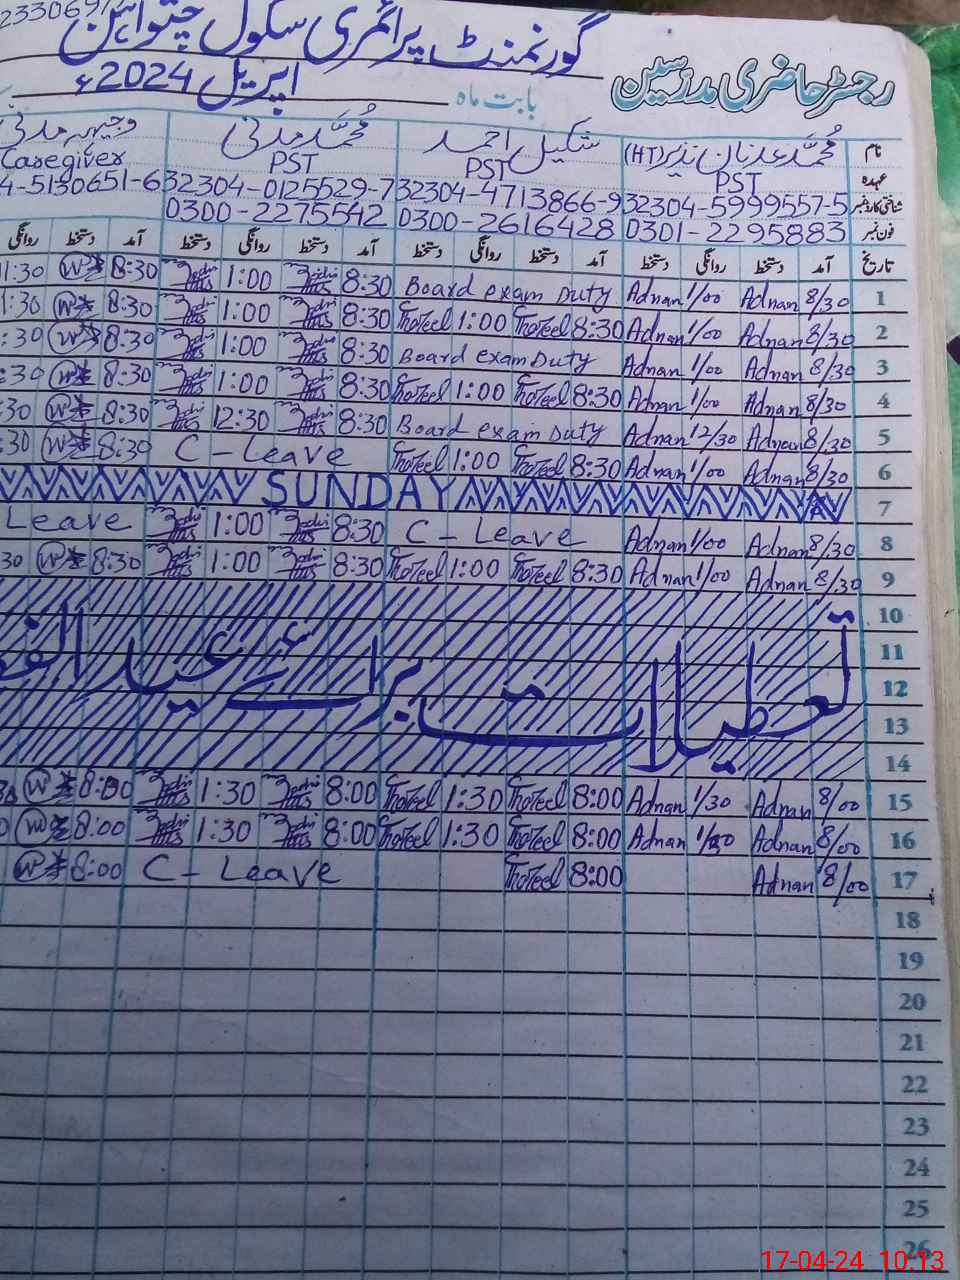 233069
گورنمنٹ پرائمری سکول
رجسٹر حاضری مدرسین
بابت ماہ اپریل 2024ء
نام محمد عدنان نذیر (HT) شکیل احمد محمد مدنی
عہدہ PST PST PST Caregiver
شناختی کارڈ نمبر 32304-5999557-5 32304-4713866-9 32304-0125529-7 4-5130651-6
فون نمبر 0301-2295883 0300-2616428 0300-2275542
تاریخ آمد دستخط روانگی دستخط آمد دستخط روانگی دستخط آمد دستخط روانگی دستخط آمد دستخط روانگی
1 8/30 Adnan 1/00 Adnan Board exam Duty 8:30 1:00 8:30 11:30
2 8/30 Adnan 1/00 Adnan 8:30 1:00 8:30 1:00 8:30 1:30
3 8/30 Adnan 1/00 Adnan Board exam Duty 8:30 1:00 8:30 :30
4 8/30 Adnan 1/00 Adnan 8:30 1:00 8:30 1:00 8:30 :30
5 8/30 Adnan 12/30 Adnan Board exam Duty 8:30 12:30 8:30 30
6 8/30 Adnan 1/00 Adnan 8:30 1:00 C-Leave 8:30 :30
7 SUNDAY
8 8/30 Adnan 1/00 Adnan C-Leave 8:30 1:00 Leave
9 8/30 Adnan 1/00 Adnan 8:30 1:00 8:30 1:00 8:30 30
10
11
12 تعطیلات برائے عید
13
14
15 8/00 Adnan 1/30 Adnan 8:00 1:30 8:00 1:30 8:00
16 8/00 Adnan Adnan 8:00 1:30 8:00 1:30 8:00
17 8/00 Adnan 8:00 C-Leave 8:00
18
19
20
21
22
23
24
25
26
17-04-24 10:13